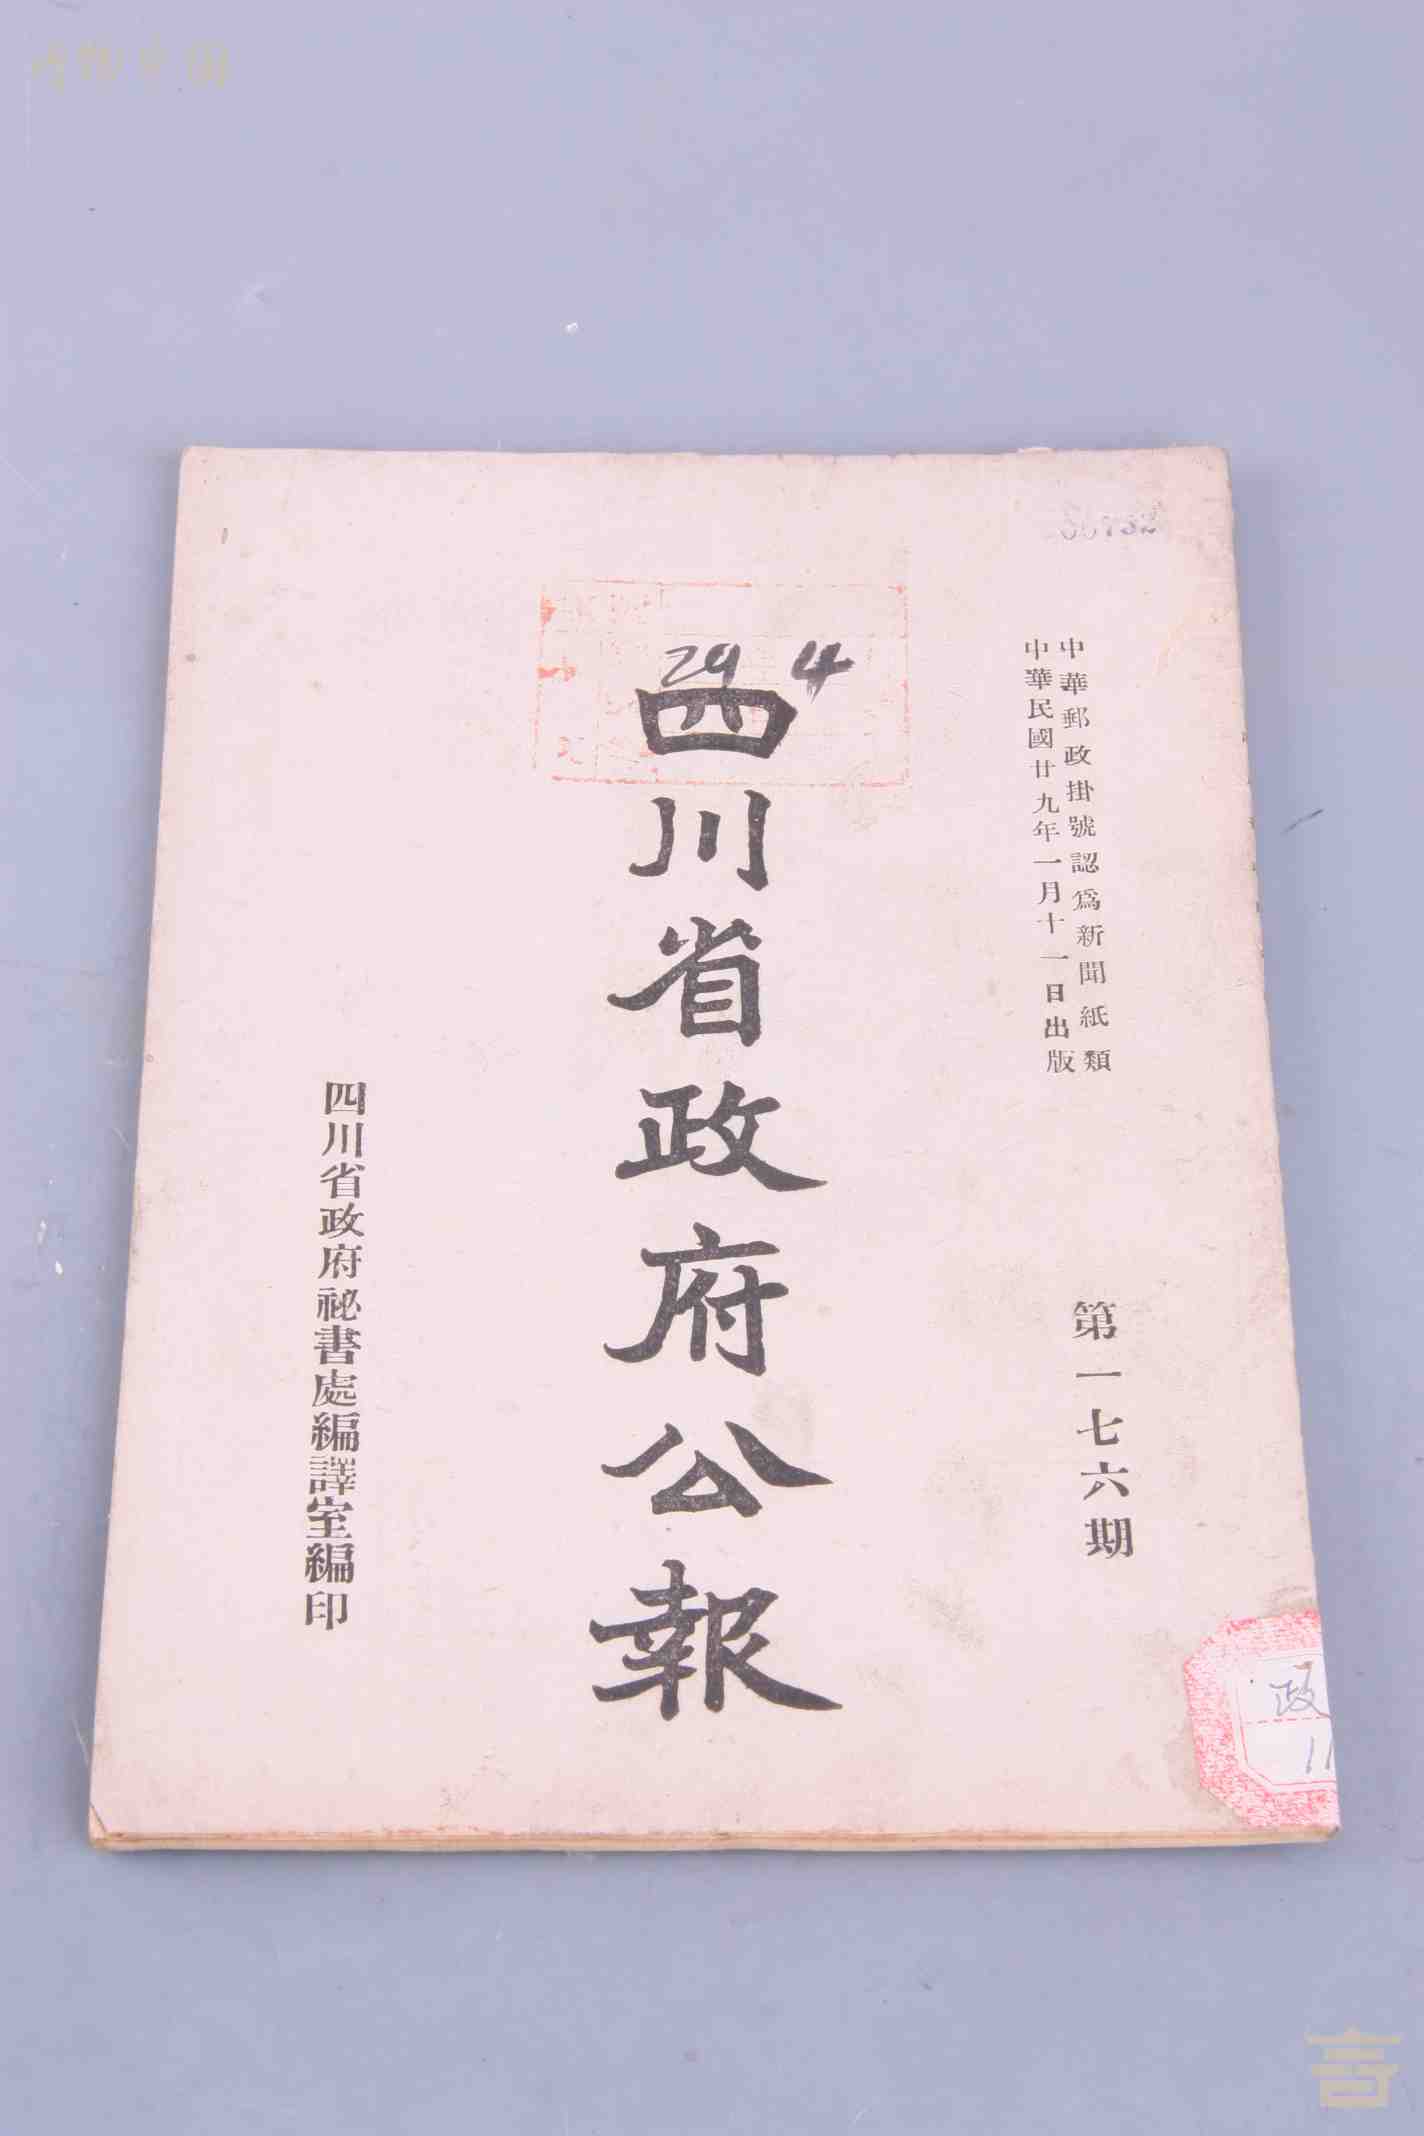 中華郵政掛號認爲新聞紙類
中華民國廿九年一月十一日出版
第一七六期
29 4
四川省政府公報
四川省政府祕書處編譯室編印
政
11